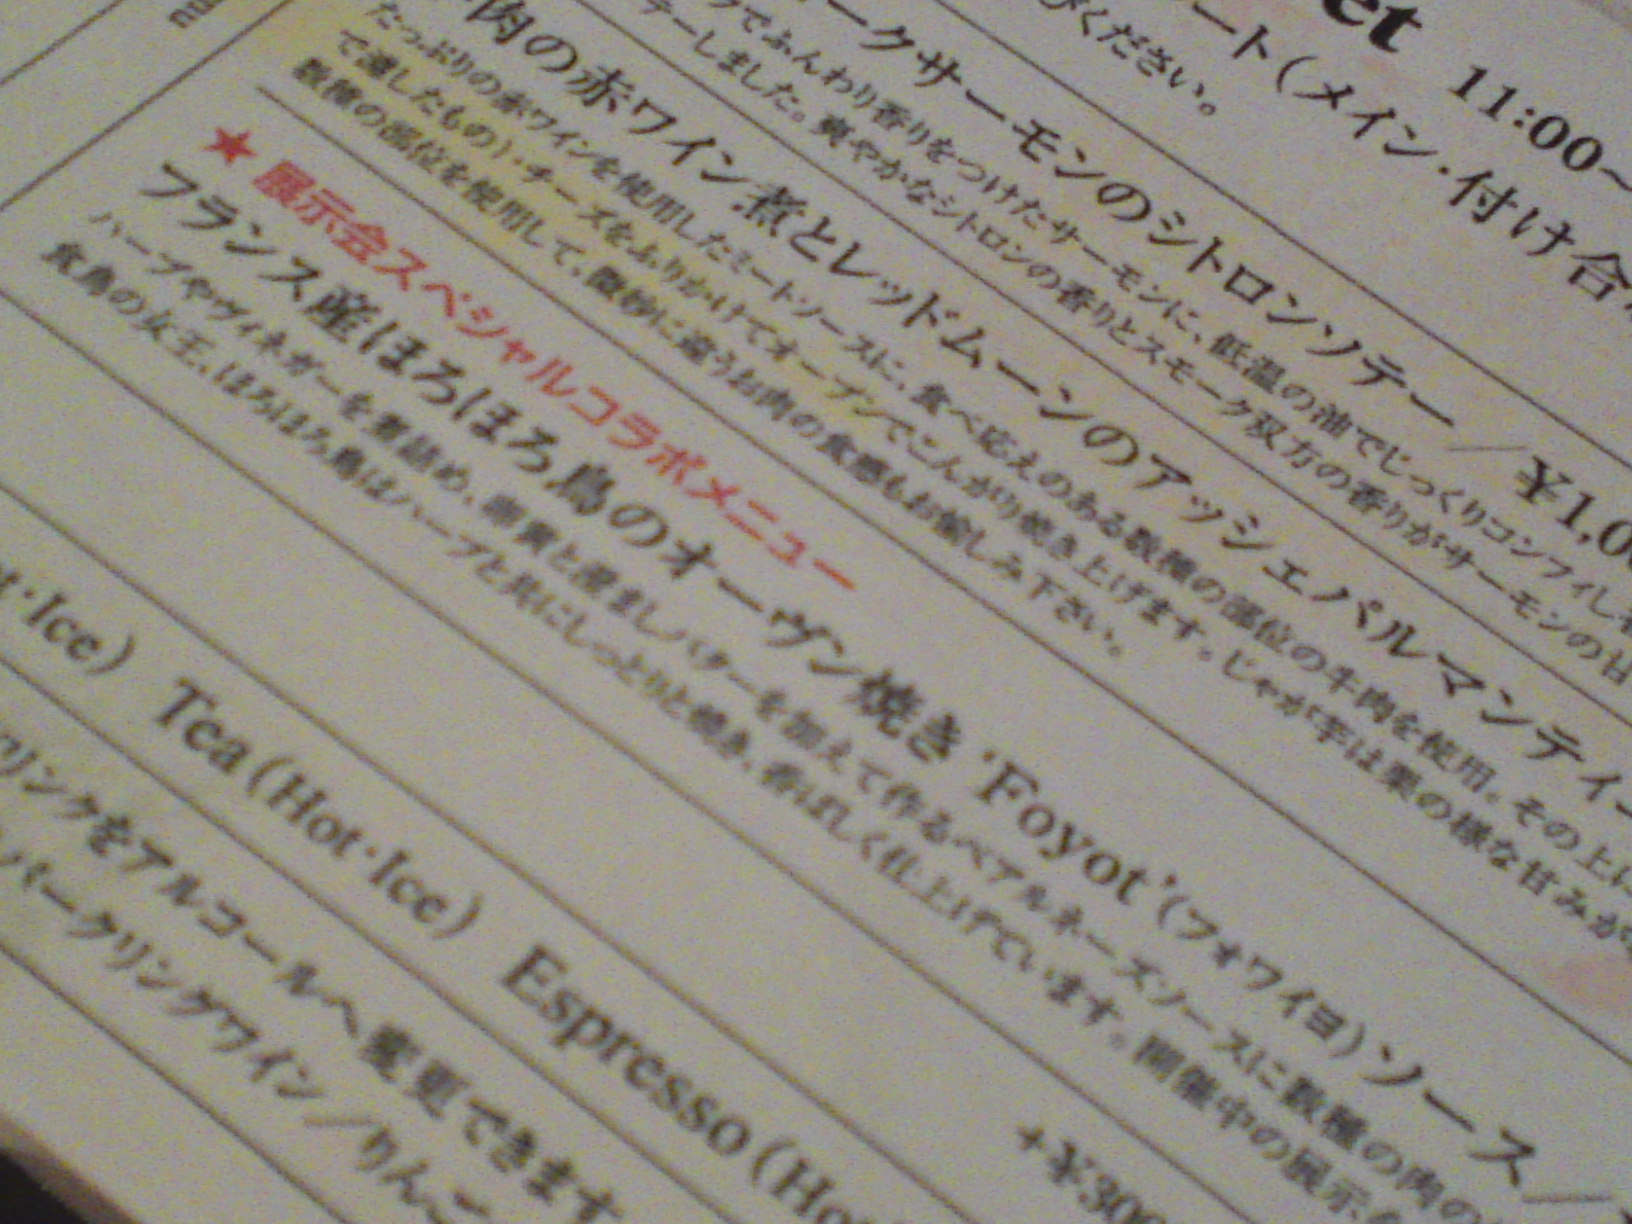 et 11:00~
ート(メイン・付け合
びください。
ークサーモンのシトロンソテー/¥1,0
クでふんわり香りをつけたサーモンに、低温の油でじっくりコンフィし
テーしました。爽やかなシトロンの香りとスモーク双方の香りがサーモンの甘
肉の赤ワイン煮とレッドムーンのアッシェパルマンティ
たっぷりの赤ワインを使用したミートソースに、食べ応えのある数種の部位の牛肉を使用。その上に
で濾したもの)・チーズをふりかけてオーブンでこんがり焼き上げます。じゃが芋は栗の様な甘みが
数種の部位を使用して、微妙に違うお肉の食感もお愉しみ下さい。
★展示会スペシャルコラボメニュー
フランス産ほろほろ鳥のオーヴン焼き 'Foyot'(フォワイヨ)ソース/
ハーブやヴィネガーを煮詰め、卵黄と澄ましバターを加えて作るベアルネーズソースに数種の肉の
食鳥の女王、ほろほろ鳥はハーブと共にしっとりと焼き、香ばしく仕上げています。開催中の展示
・Ice) Tea(Hot・Ice) Espresso(Ho
リンクをアルコールへ変更できます +¥300
パークリングワイン/りんご